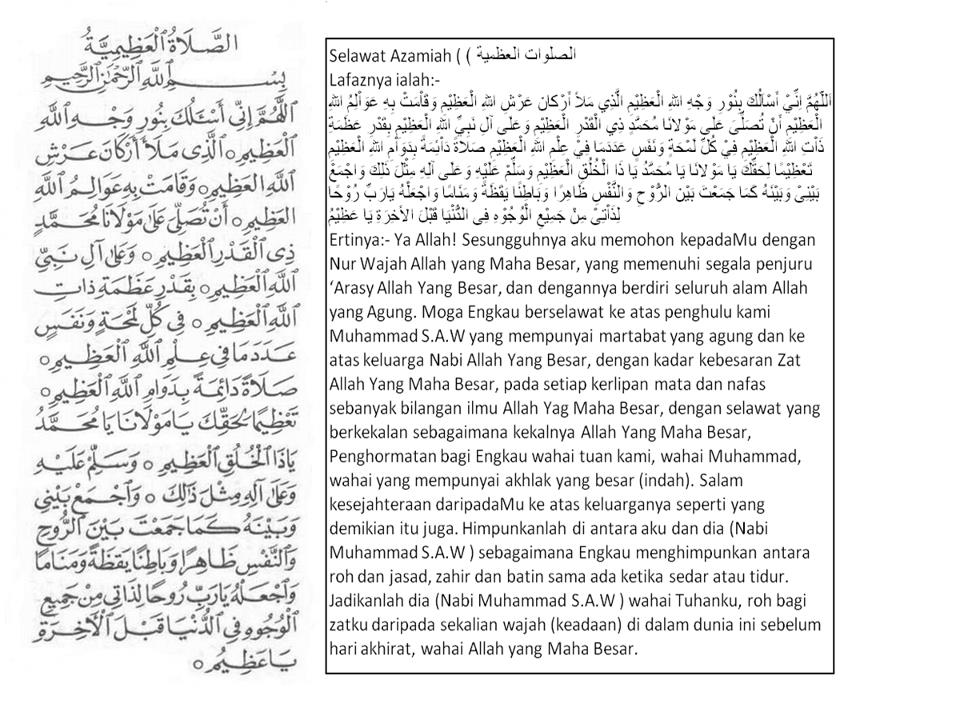 الصَّلَاةُ الْعَظِيمِيَّةُ
بِسْمِ اللهِ الرَّحْمٰنِ الرَّحِيمِ
اَللّٰهُمَّ إِنِّي أَسْئَلُكَ بِنُورِ وَجْهِ اللهِ
الْعَظِيمِ ○ الَّذِي مَلَأَ أَرْكَانَ عَرْشِ
اللهِ الْعَظِيمِ ○ وَقَامَتْ بِهِ عَوَالِمُ اللهِ
الْعَظِيمِ ○ أَنْ تُصَلِّيَ عَلَى مَوْلَانَا مُحَمَّدٍ
ذِي الْقَدْرِ الْعَظِيمِ ○ وَعَلَى آلِ نَبِيِّ
اللهِ الْعَظِيمِ ○ بِقَدْرِ عَظَمَةِ ذَاتِ
اللهِ الْعَظِيمِ ○ فِي كُلِّ لَمْحَةٍ وَنَفَسٍ
عَدَدَ مَا فِي عِلْمِ اللهِ الْعَظِيمِ ○
صَلَاةً دَائِمَةً بِدَوَامِ اللهِ الْعَظِيمِ ○
تَعْظِيمًا لِحَقِّكَ يَا مَوْلَانَا يَا مُحَمَّدُ
يَا ذَا الْخُلُقِ الْعَظِيمِ ○ وَسَلِّمْ عَلَيْهِ
وَعَلَى آلِهِ مِثْلَ ذَالِكَ ○ وَاجْمَعْ بَيْنِي
وَبَيْنَهُ كَمَا جَمَعْتَ بَيْنَ الرُّوحِ
وَالنَّفْسِ ظَاهِرًا وَبَاطِنًا يَقَظَةً وَمَنَامًا
وَاجْعَلْهُ يَارَبِّ رُوحًا لِذَاتِي مِنْ جَمِيعِ
الْوُجُوهِ فِي الدُّنْيَا قَبْلَ الْآخِرَةِ
يَا عَظِيمُ ○
Selawat Azamiah ( ( الصلوات العظمية
Lafaznya ialah:-
اَللّٰهُمَّ إِنِّيْ أَسْأَلُكَ بِنُوْرِ وَجْهِ اللهِ الْعَظِيْمِ الَّذِي مَلَأَ أَرْكَانَ عَرْشِ اللهِ الْعَظِيْمِ وَقَامَتْ بِهِ عَوَالِمُ اللهِ
الْعَظِيْمِ أَنْ تُصَلِّىَ عَلَى مَوْلَانَا مُحَمَّدٍ ذِي الْقَدْرِ الْعَظِيْمِ وَعَلَى آلِ نَبِيِّ اللهِ الْعَظِيْمِ بِقَدْرِ عَظَمَةِ
ذَاتِ اللهِ الْعَظِيْمِ فِيْ كُلِّ لَمْحَةٍ وَنَفَسٍ عَدَدَمَا فِيْ عِلْمِ اللهِ الْعَظِيْمِ صَلَاةً دَائِمَةً بِدَوَامِ اللهِ الْعَظِيْمِ
تَعْظِيْمًا لِحَقِّكَ يَا مَوْلَانَا يَا مُحَمَّدُ يَا ذَا الْخُلُقِ الْعَظِيْمِ وَسَلِّمْ عَلَيْهِ وَعَلَى آلِهِ مِثْلَ ذٰلِكَ وَاجْمَعْ
بَيْنِىْ وَبَيْنَهُ كَمَا جَمَعْتَ بَيْنَ الرُّوْحِ وَالنَّفْسِ ظَاهِرًا وَبَاطِنًا يَقْظَةً وَمَنَامًا وَاجْعَلْهُ يَارَبِّ رُوْحًا
لِذَاتِىْ مِنْ جَمِيْعِ الْوُجُوْهِ فِى الدُّنْيَا قَبْلَ الْآخِرَةِ يَا عَظِيْمُ
Ertinya:- Ya Allah! Sesungguhnya aku memohon kepadaMu dengan
Nur Wajah Allah yang Maha Besar, yang memenuhi segala penjuru
‘Arasy Allah Yang Besar, dan dengannya berdiri seluruh alam Allah
yang Agung. Moga Engkau berselawat ke atas penghulu kami
Muhammad S.A.W yang mempunyai martabat yang agung dan ke
atas keluarga Nabi Allah Yang Besar, dengan kadar kebesaran Zat
Allah Yang Maha Besar, pada setiap kerlipan mata dan nafas
sebanyak bilangan ilmu Allah Yag Maha Besar, dengan selawat yang
berkekalan sebagaimana kekalnya Allah Yang Maha Besar,
Penghormatan bagi Engkau wahai tuan kami, wahai Muhammad,
wahai yang mempunyai akhlak yang besar (indah). Salam
kesejahteraan daripadaMu ke atas keluarganya seperti yang
demikian itu juga. Himpunkanlah di antara aku dan dia (Nabi
Muhammad S.A.W ) sebagaimana Engkau menghimpunkan antara
roh dan jasad, zahir dan batin sama ada ketika sedar atau tidur.
Jadikanlah dia (Nabi Muhammad S.A.W ) wahai Tuhanku, roh bagi
zatku daripada sekalian wajah (keadaan) di dalam dunia ini sebelum
hari akhirat, wahai Allah yang Maha Besar.